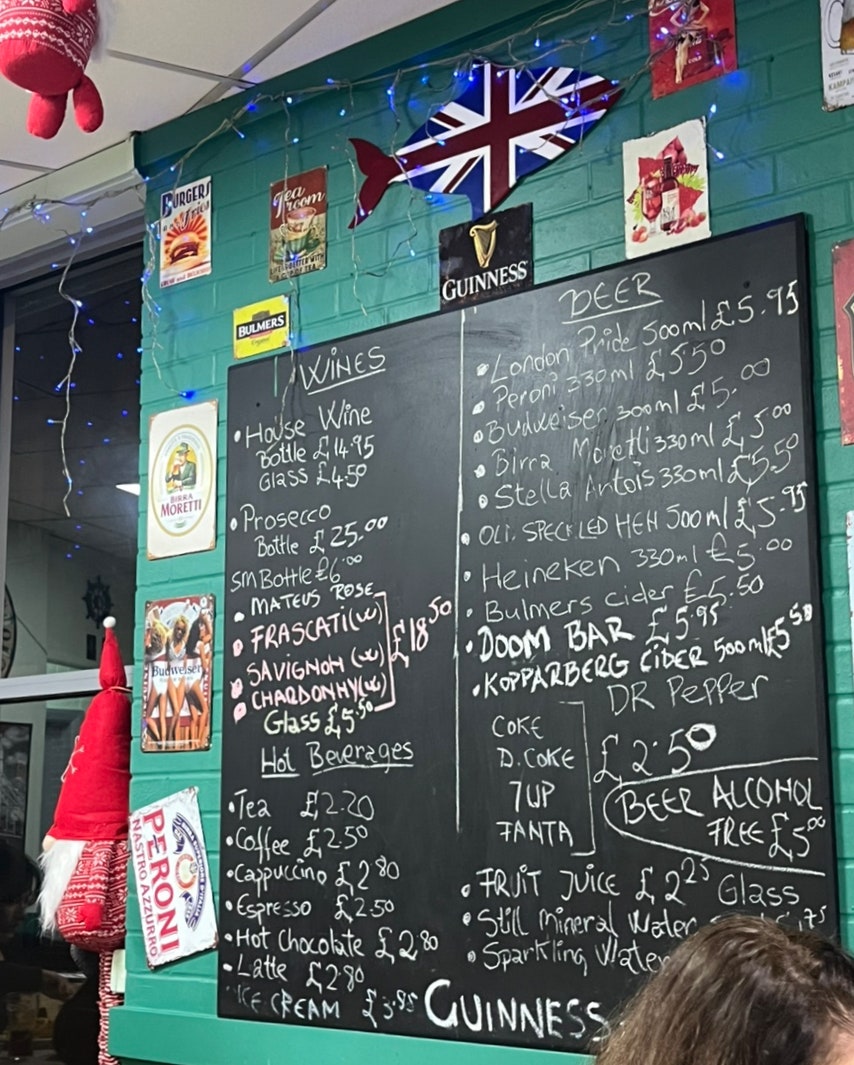 BURGERS
Fries
Tea
room
GUINNESS
BULMERS
BIRRA
MORETTI
Budweiser
PERONI
NASTRO AZZURRO
WINES
House Wine
Bottle £14.95
Glass £4.50
Prosecco
Bottle £25.00
SM Bottle £6.00
MATEUS ROSE
FRASCATI (W)
SAVIGNON (W)
CHARDONNY (W)
£18.50
Glass £5.50
Hot Beverages
Tea £2.20
Coffee £2.50
Cappuccino £2.80
Espresso £2.50
Hot Chocolate £2.80
Latte £2.80
ICE CREAM £3.95
BEER
London Pride 500ml £5.95
Peroni 330ml £5.50
Budweiser 300ml £5.00
Birra Moretti 330ml £5.00
Stella Antois 330ml £5.50
OLD SPECKLED HEN 500ml £5.95
Heineken 330ml £5.00
Bulmers Cider £5.50
DOOM BAR £5.95
KOPPARBERG CIDER 500ml £5.50
DR Pepper
COKE
D.COKE
7UP
FANTA
£2.50
BEER ALCOHOL
FREE £5.00
FRUIT JUICE £2.25 Glass
Still Mineral Water
Sparkling Water
GUINNESS